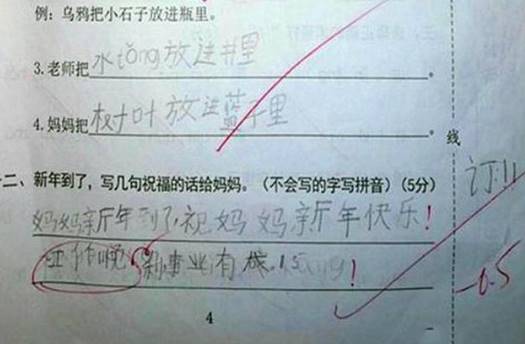 例：乌鸦把小石子放进瓶里。
3.老师把水tǒng放进井里。
4.妈妈把树叶放进蓝子里。
线
十二、新年到了，写几句祝福的话给妈妈。（不会写的字写拼音）（5分）
订
妈妈新年到了，祝妈妈新年快乐！
工作 事业有
-0.5
4